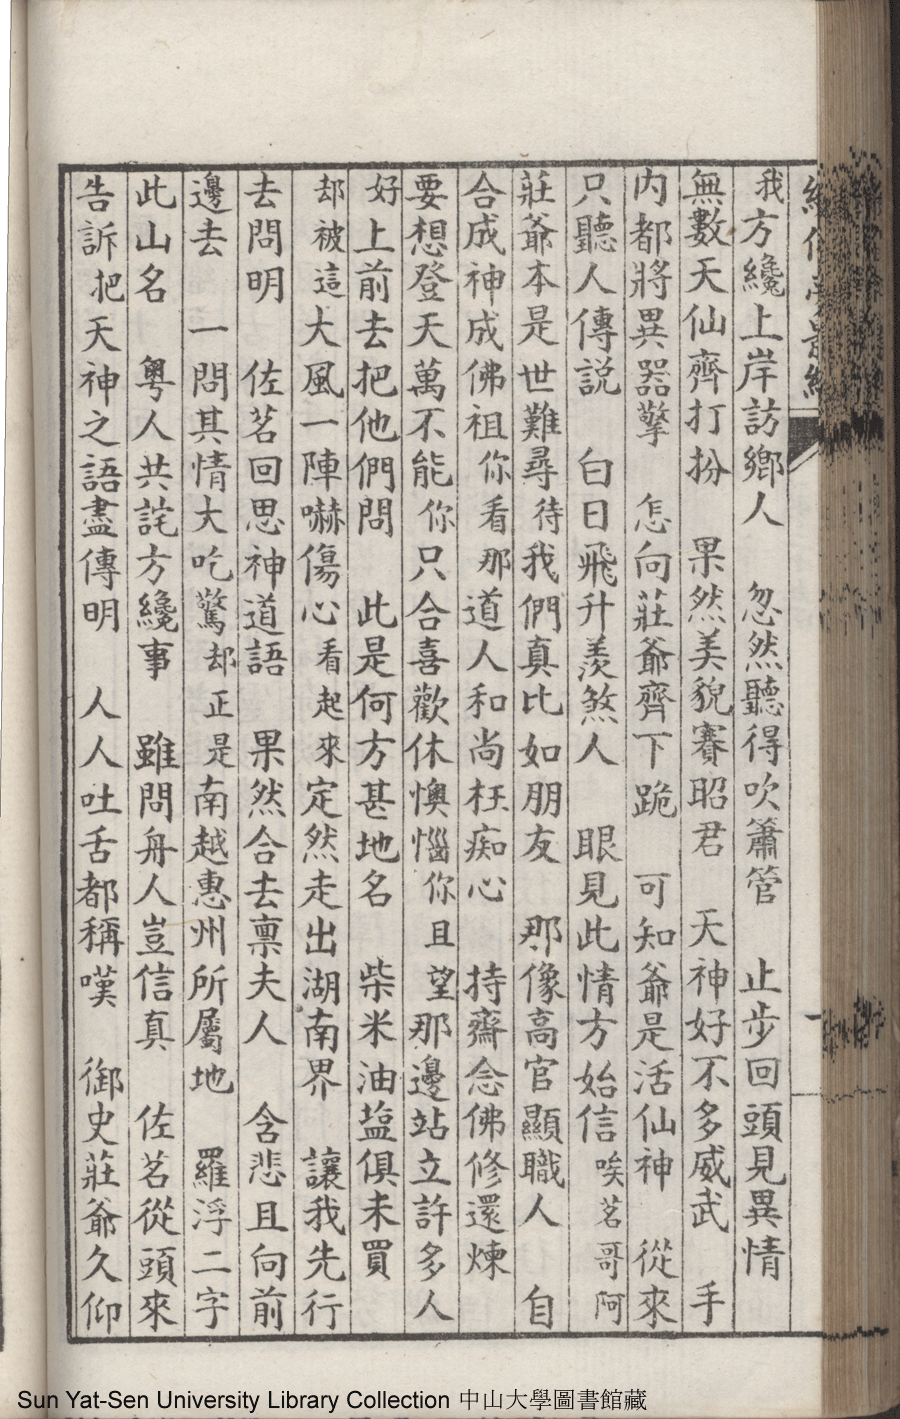 我方纔上岸訪鄉人 忽然聽得吹簫管 止步回頭見異情
無數天仙齊打扮 果然美貌賽昭君 天神好不多威武 手
内都將異器擎 怎向莊爺齊下跪 可知爺是活仙神 從來
只聽人傳説 白日飛升羨煞人 眼見此情方始信 唉茗哥阿
莊爺本是世難尋 待我們真比如朋友 那像高官顯職人 自
合成神成佛祖 你看那道人和尚枉痴心 持齋念佛修還煉
要想登天萬不能 你只合喜歡休懊惱 你且望那邊站立許多人
好上前去把他們問 此是何方甚地名 柴米油盐俱未買
却被這大風一陣嚇傷心 看起來定然走出湖南界 讓我先行
去問明 佐茗回思神道語 果然合去禀夫人 含悲且向前
邊去 一問其情大吃驚 却正是南越惠州所屬地 羅浮二字
此山名 粵人共詫方纔事 雖問舟人豈信真 佐茗從頭來
告訴 把天神之語盡傳明 人人吐舌都稱嘆 御史莊爺久仰
Sun Yat-Sen University Library Collection 中山大學圖書館藏